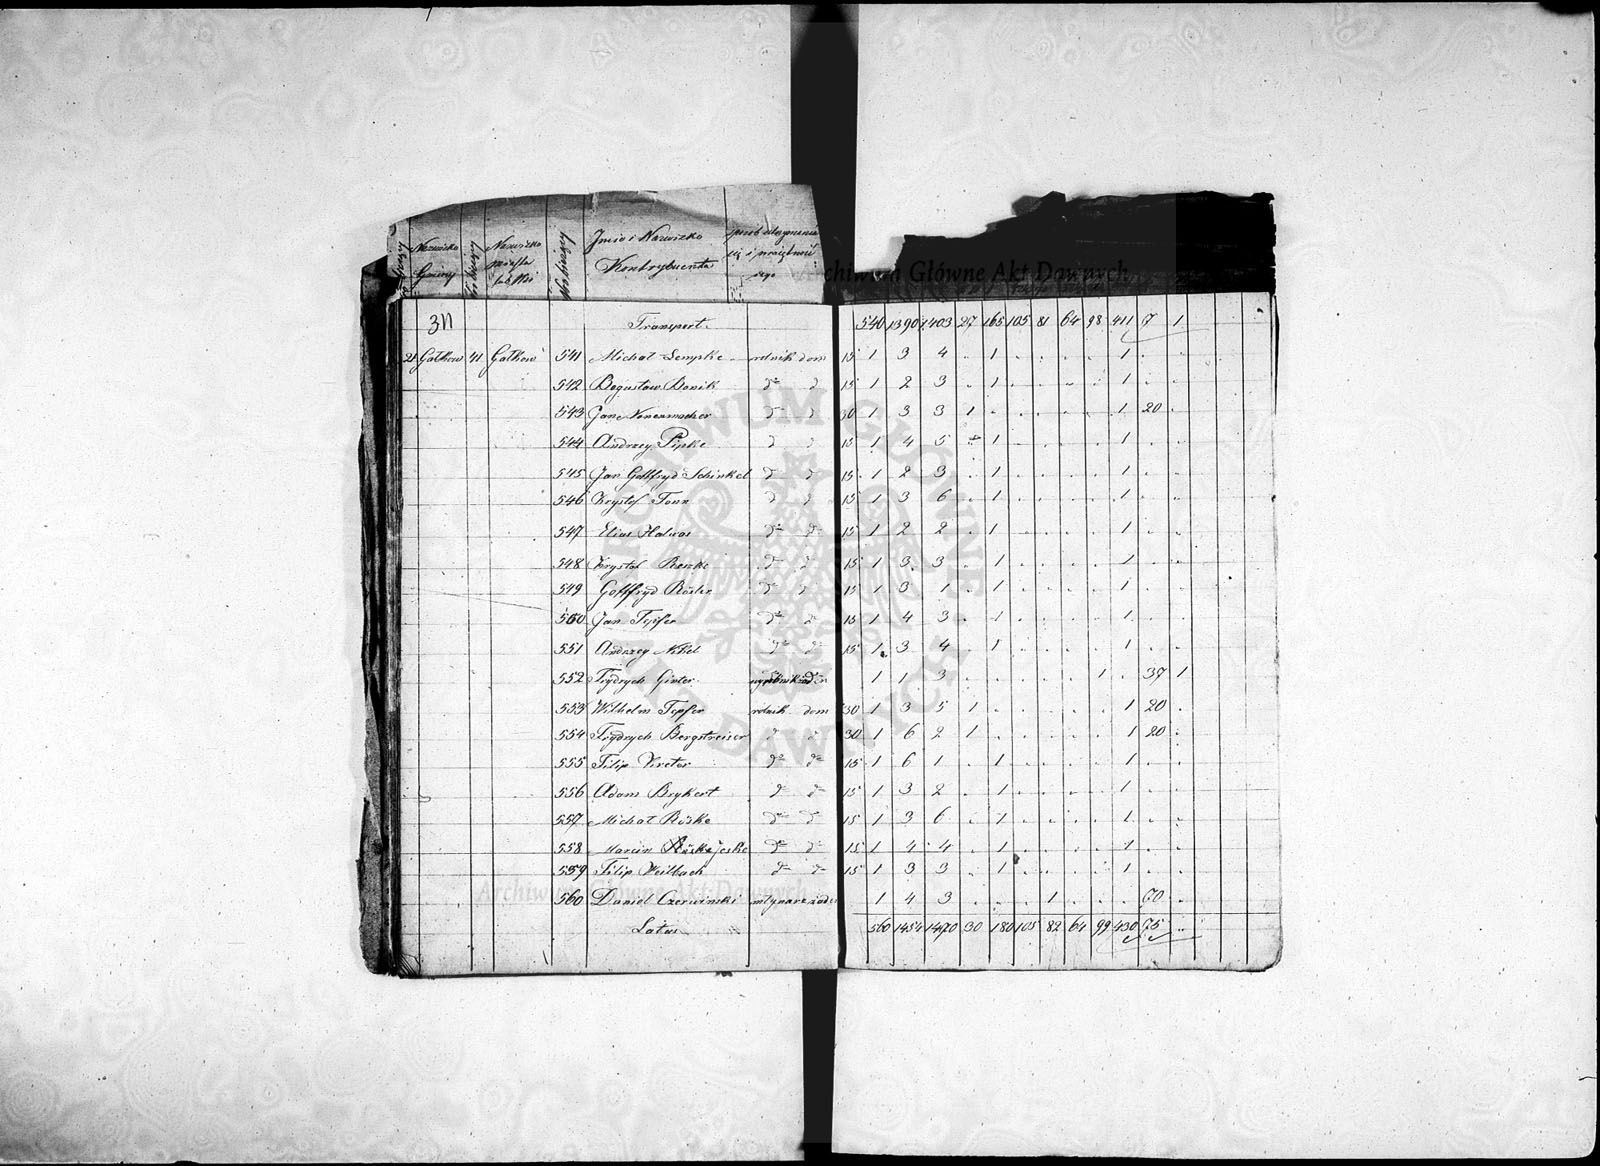 Nazwisko Gminy
Nazwisko
Imie i Nazwisko Kontrybuenta
Archiwum Główne Akt Dawnych
311 Transport 540 1390 1403 27 165 105 81 64 98 411 7 1
21 Gałkow 41 Gałkow 541 Michał Sempke rolnik dom 15 1 3 4 . 1 . . . . 1 . .
542 Bogusław Banik do d 15 1 2 3 . 1 . . . . 1 . .
543 Jan Nonenmacher do d 30 1 3 3 1 . . . . . 1 20 .
544 Andrzey Pipke d d 15 1 4 5 . 1 . . . . 1 . .
545 Jan Gottfryd Schinkel d d 15 1 2 3 . 1 . . . . 1 . .
546 Krystof Tonn d d 15 1 3 6 . 1 . . . . 1 . .
547 Elias Halwas do do 15 1 2 2 . 1 . . . . 1 . .
548 Krystof Reszke do d 15 1 3 3 . 1 . . . . 1 . .
549 Gottfryd Rösler do d 15 1 3 1 . 1 . . . . 1 . .
550 Jan Topfer do do 15 1 4 3 . 1 . . . . 1 . .
551 Andrzey Nikel do do 15 1 3 4 . 1 . . . . 1 . .
552 Frydrych Ginter 1 1 3 . . . . . 1 . 37 1
553 Wilhelm Topfer rolnik dom 30 1 3 5 1 . . . . . 1 20 .
554 Frydrych Bergstreiser d d 30 1 6 2 1 . . . . . 1 20 .
555 Filip Vireter do do 15 1 6 1 . 1 . . . . 1 . .
556 Adam Brykert do do 15 1 3 2 . 1 . . . . 1 . .
557 Michał Röske do do 15 1 3 6 . 1 . . . . 1 . .
558 Marcin Jeske do do 15 1 4 4 . 1 . . . . 1 . .
559 Filip Weilbach do do 15 1 3 3 . 1 . . . . 1 . .
560 Daniel Czerwinski mlynarz 1 4 3 . . . 1 . . . 70 .
Latus 560 1454 1470 30 180 105 82 64 99 430 75
Archiwum Główne Akt Dawnych
ARCHIWUM GŁÓWNE AKT DAWNYCH